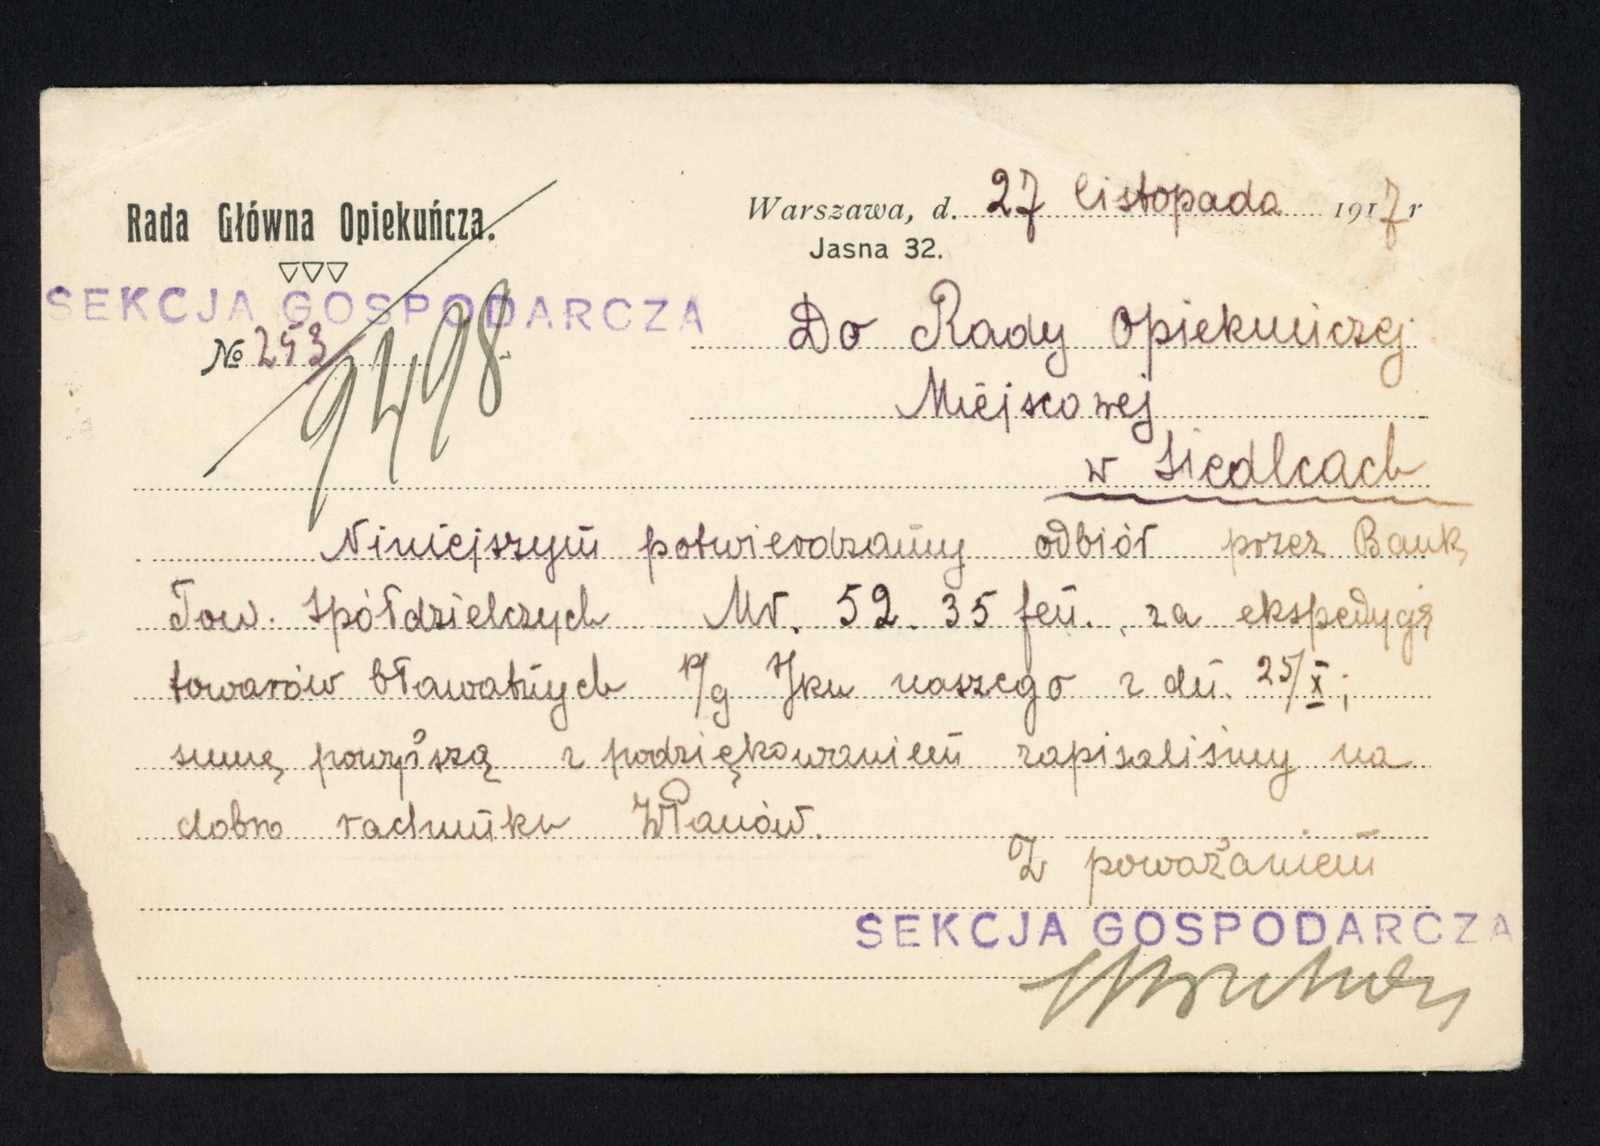 Rada Główna Opiekuńcza.
SEKCJA GOSPODARCZA
№ 253
9498
Warszawa, d. 27 listopada 1917 r
Jasna 32.
Do Rady Opiekuńczej
Miejscowej
w Siedlcach
Niniejszym potwierdzamy odbiór przez Bank
Tow. Spółdzielczych Mr. 52. 35 fen. za ekspedycję
towarów bławatnych p/g r-ku naszego z dn. 25/X;
sumę powyższą z podziękowaniem zapisaliśmy na
dobro rachunku WPanów.
Z poważaniem
SEKCJA GOSPODARCZA